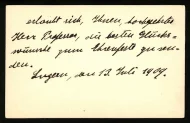 erlaubt sich, Ihnen, hochgeehrter
Herr Professor, die besten Glücks-
wünsche zum Ehrenfeste zu sen-
den.
Luzern, den 12. Juli 1909.